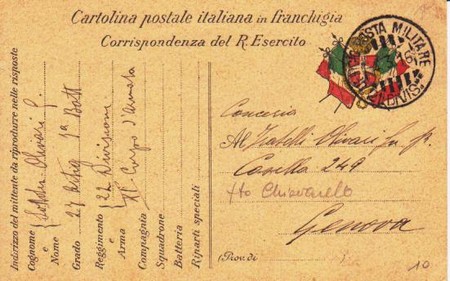 Cartolina postale italiana in franchigia
Corrispondenza del R. Esercito
POSTA MILITARE
DIVIS.
Indirizzo del mittente da riprodurre nelle risposte
Cognome
e
Nome
Grado
Reggimento
e
Arma
Compagnia
Squadrone
Batteria
Riparti speciali
Olivari G.
27 Artig 1ª Batt
22 Divisione
XI Corpo d'Armata
Conceria
Al Fratelli Olivari fu G.
Casella 249
Genova
(Prov. di
10